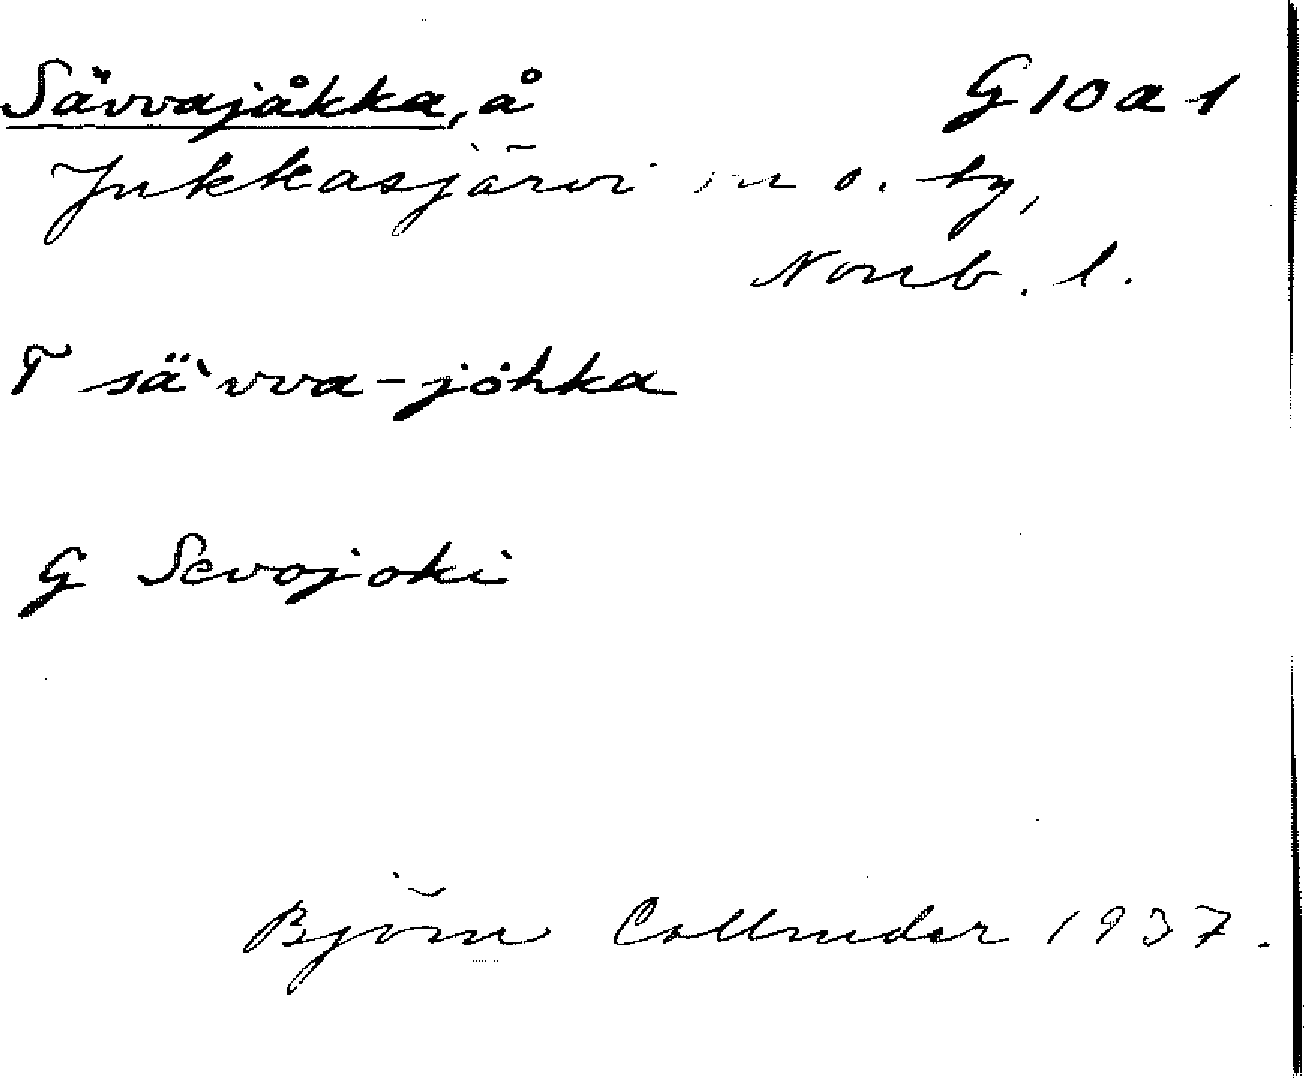 Sävvajåkka, å G 10 a 1
Jukkasjärvi sn o. by,
Norrb. l.
T sä`vva-jåhka
G Sevojoki
Björn Collinder 1937.